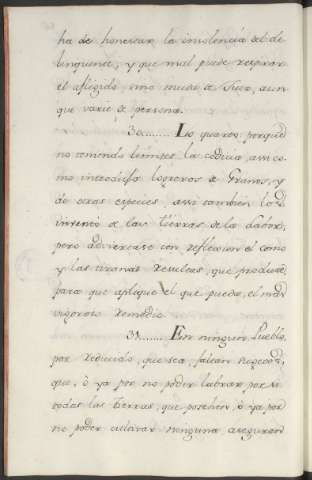 ha de honestar la insolencia del de
linquente, y que mal puede respirar
el afligido, sino muda de Juez, aun
que varie de persona.
30....... Lo quarto, porque
no teniendo limites la codicia asi co
mo introdujo logreros de Granos, y
de otras especies, asi tambien los
inventó de las tierras de la Labor,
pero adviertase con reflexion el como
y las tiranas resultas, que produce,
para que aplique el que puede, el mas
vigoroso remedio.
31....... En ningun Pueblo,
por reducido, que sea, faltan
que, ó ya por no poder labrar por si
todas las tierras, que posehen, ó ya por
no poder cultivar ninguna aseguran